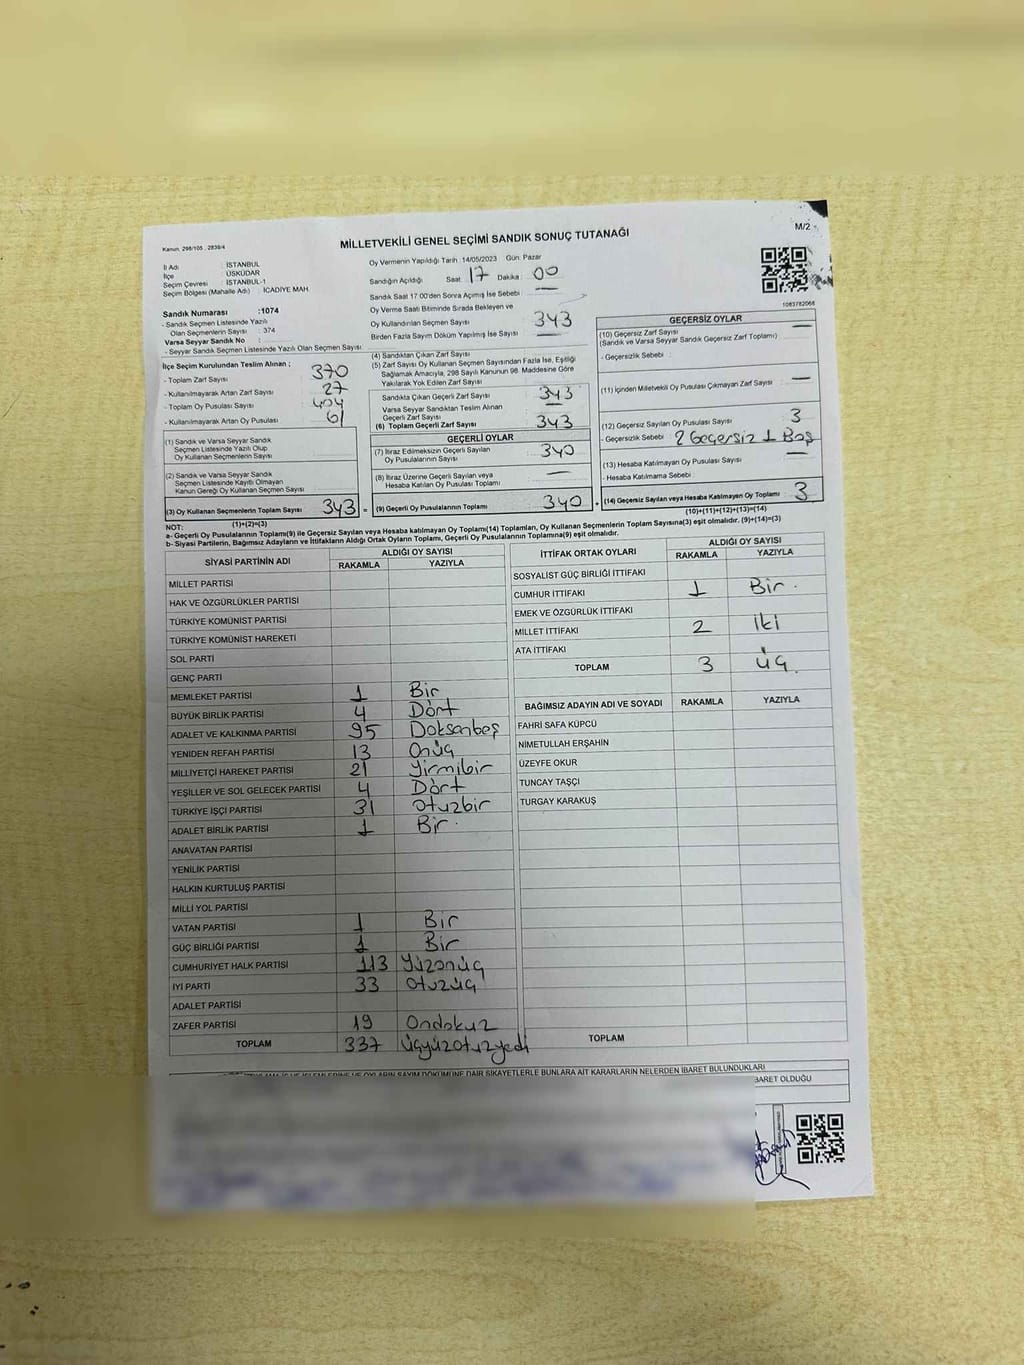 Kanun, 298/105 , 2839/4
MİLLETVEKİLİ GENEL SEÇİMİ SANDIK SONUÇ TUTANAĞI
M/2
İl Adı : İSTANBUL
İlçe : ÜSKÜDAR
Seçim Çevresi : İSTANBUL-1
Seçim Bölgesi (Mahalle Adı) : İCADİYE MAH
Sandık Numarası :1074
- Sandık Seçmen Listesinde Yazılı
Olan Seçmenlerin Sayısı : 374
Varsa Seyyar Sandık No :
- Seyyar Sandık Seçmen Listesinde Yazılı Olan Seçmen Sayısı:
Oy Vermenin Yapıldığı Tarih :14/05/2023 Gün: Pazar
Sandığın Açıldığı Saat 17 Dakika 00
Sandık Saat 17:00'den Sonra Açımış İse Sebebi : —
Oy Verme Saati Bitiminde Sırada Bekleyen ve
Oy Kullandırılan Seçmen Sayısı : 343
Birden Fazla Sayım Döküm Yapılmış İse Sayısı : —
1083782066
İlçe Seçim Kurulundan Teslim Alınan ;
- Toplam Zarf Sayısı : 370
- Kullanılmayarak Artan Zarf Sayısı : 27
- Toplam Oy Pusulası Sayısı : 404
- Kullanılmayarak Artan Oy Pusulası : 61
(1) Sandık ve Varsa Seyyar Sandık
Seçmen Listesinde Yazılı Olup
Oy Kullanan Seçmenlerin Sayısı
(2) Sandık ve Varsa Seyyar Sandık
Seçmen Listesinde Kayıtlı Olmayan
Kanun Gereği Oy Kullanan Seçmen Sayısı
(3) Oy Kullanan Seçmenlerin Toplam Sayısı 343 =
(1)+(2)=(3)
(4) Sandıktan Çıkan Zarf Sayısı
(5) Zarf Sayısı Oy Kullanan Seçmen Sayısından Fazla İse, Eşitliği
Sağlamak Amacıyla, 298 Sayılı Kanunun 98. Maddesine Göre
Yakılarak Yok Edilen Zarf Sayısı
Sandıkta Çıkan Geçerli Zarf Sayısı : 343
Varsa Seyyar Sandıktan Teslim Alınan
Geçerli Zarf Sayısı : —
(6) Toplam Geçerli Zarf Sayısı : 343
GEÇERLİ OYLAR
(7) İtiraz Edilmeksizin Geçerli Sayılan
Oy Pusulalarının Sayısı : 340
(8) İtiraz Üzerine Geçerli Sayılan veya
Hesaba Katılan Oy Pusulası Toplamı : —
(9) Geçerli Oy Pusulalarının Toplamı : 340 +
GEÇERSİZ OYLAR
(10) Geçersiz Zarf Sayısı —
(Sandık ve Varsa Seyyar Sandık Geçersiz Zarf Toplamı)
- Geçersizlik Sebebi :
(11) İçinden Milletvekili Oy Pusulası Çıkmayan Zarf Sayısı —
(12) Geçersiz Sayılan Oy Pusulası Sayısı 3
- Geçersizlik Sebebi : 2 Geçersiz 1 Boş
(13) Hesaba Katılmayan Oy Pusulası Sayısı —
- Hesaba Katılmama Sebebi :
(14) Geçersiz Sayılan veya Hesaba Katılmayan Oy Toplamı : 3
(10)+(11)+(12)+(13)=(14)
NOT:
a- Geçerli Oy Pusulalarının Toplamı(9) ile Geçersiz Sayılan veya Hesaba katılmayan Oy Toplamı(14) Toplamları, Oy Kullanan Seçmenlerin Toplam Sayısına(3) eşit olmalıdır. (9)+(14)=(3)
b- Siyasi Partilerin, Bağımsız Adayların ve İttifakların Aldığı Ortak Oyların Toplamı, Geçerli Oy Pusulalarının Toplamına(9) eşit olmalıdır.
SİYASİ PARTİNİN ADI ALDIĞI OY SAYISI
RAKAMLA YAZIYLA
MİLLET PARTİSİ
HAK VE ÖZGÜRLÜKLER PARTİSİ
TÜRKİYE KOMÜNİST PARTİSİ
TÜRKİYE KOMÜNİST HAREKETİ
SOL PARTİ
GENÇ PARTİ
MEMLEKET PARTİSİ 1 Bir
BÜYÜK BİRLİK PARTİSİ 4 Dört
ADALET VE KALKINMA PARTİSİ 95 Doksanbeş
YENİDEN REFAH PARTİSİ 13 Onüç
MİLLİYETÇİ HAREKET PARTİSİ 21 Yirmibir
YEŞİLLER VE SOL GELECEK PARTİSİ 4 Dört
TÜRKİYE İŞÇİ PARTİSİ 31 Otuzbir
ADALET BİRLİK PARTİSİ 1 Bir.
ANAVATAN PARTİSİ
YENİLİK PARTİSİ
HALKIN KURTULUŞ PARTİSİ
MİLLİ YOL PARTİSİ
VATAN PARTİSİ 1 Bir
GÜÇ BİRLİĞİ PARTİSİ 1 Bir
CUMHURİYET HALK PARTİSİ 113 Yüzonüç
İYİ PARTİ 33 Otuzüç
ADALET PARTİSİ
ZAFER PARTİSİ 19 Ondokuz
TOPLAM 337 üçyüzotuzyedi
İTTİFAK ORTAK OYLARI ALDIĞI OY SAYISI
RAKAMLA YAZIYLA
SOSYALİST GÜÇ BİRLİĞİ İTTİFAKI
CUMHUR İTTİFAKI 1 Bir.
EMEK VE ÖZGÜRLÜK İTTİFAKI
MİLLET İTTİFAKI 2 iki
ATA İTTİFAKI
TOPLAM 3 üç.
BAĞIMSIZ ADAYIN ADI VE SOYADI RAKAMLA YAZIYLA
FAHRİ SAFA KÜPCÜ
NİMETULLAH ERŞAHİN
ÜZEYFE OKUR
TUNCAY TAŞÇI
TURGAY KARAKUŞ
TOPLAM
İŞLEMLERİNE VE OYLARIN SAYIM DÖKÜMÜNE DAİR ŞİKAYETLERLE BUNLARA AİT KARARLARIN NELERDEN İBARET BULUNDUKLARI
BARET OLDUĞU